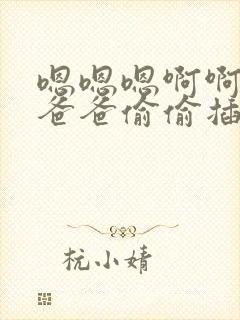 嗯嗯嗯啊啊
爸爸偷偷插
杭小婧